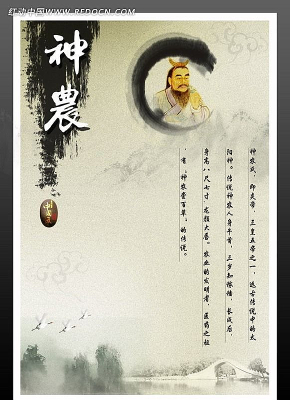 红动中国 WWW.REDOCN.COM
神農
神农氏，即炎帝，三皇五帝之一，远古传说中的太
阳神。传说神农人身牛首，三岁知稼穑，长成后，
身高八尺七寸，龙颜大唇。农业的发明者，医药之祖
，有“神农尝百草”的传说。